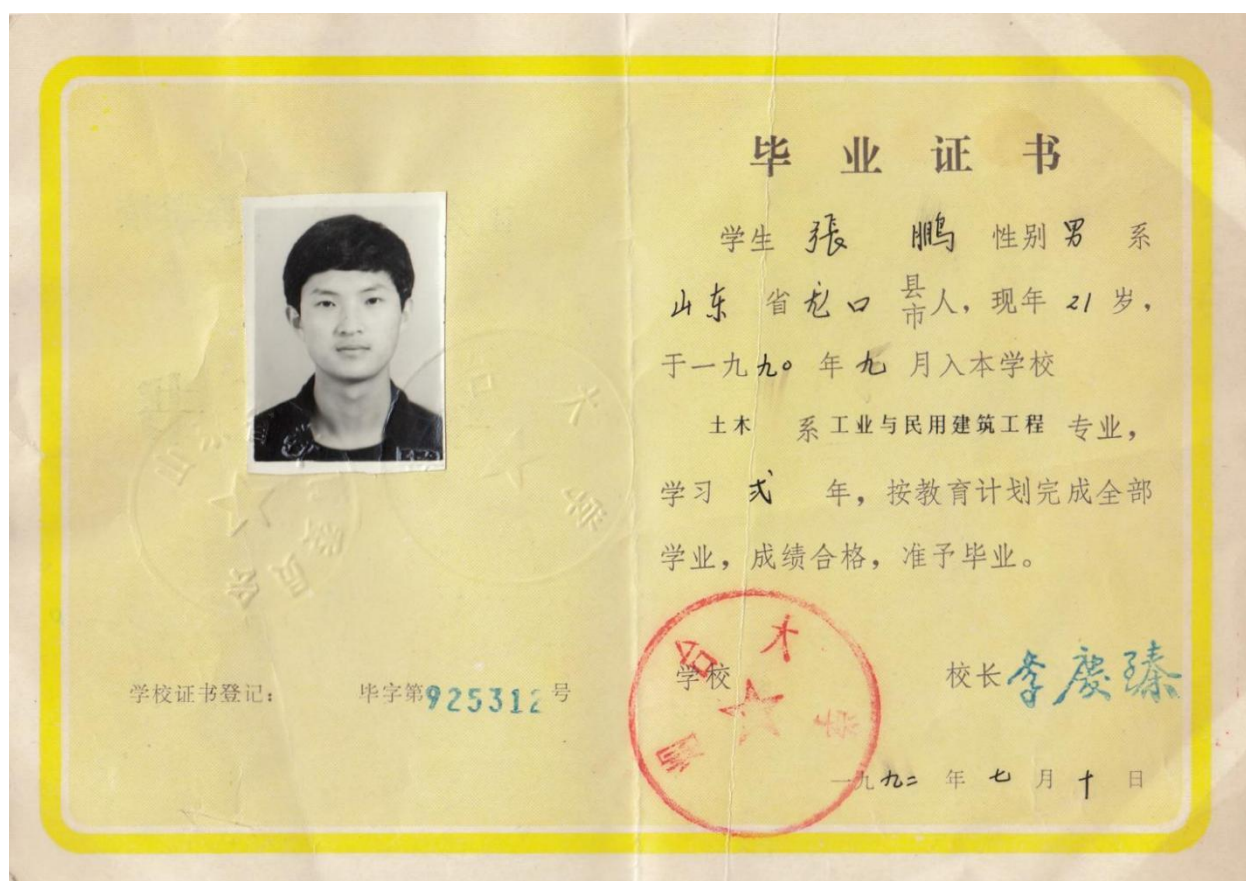 毕业证书
学生 張 鵬 性别 男 系
山东 省 龙口 县市人，现年 21 岁，
于一九九〇年九月入本学校
土木 系 工业与民用建筑工程 专业，
学习 弍 年，按教育计划完成全部
学业，成绩合格，准予毕业。
学校 校长 李慶臻
一九九二年七月十日
学校证书登记： 毕字第925312号
烟台大学